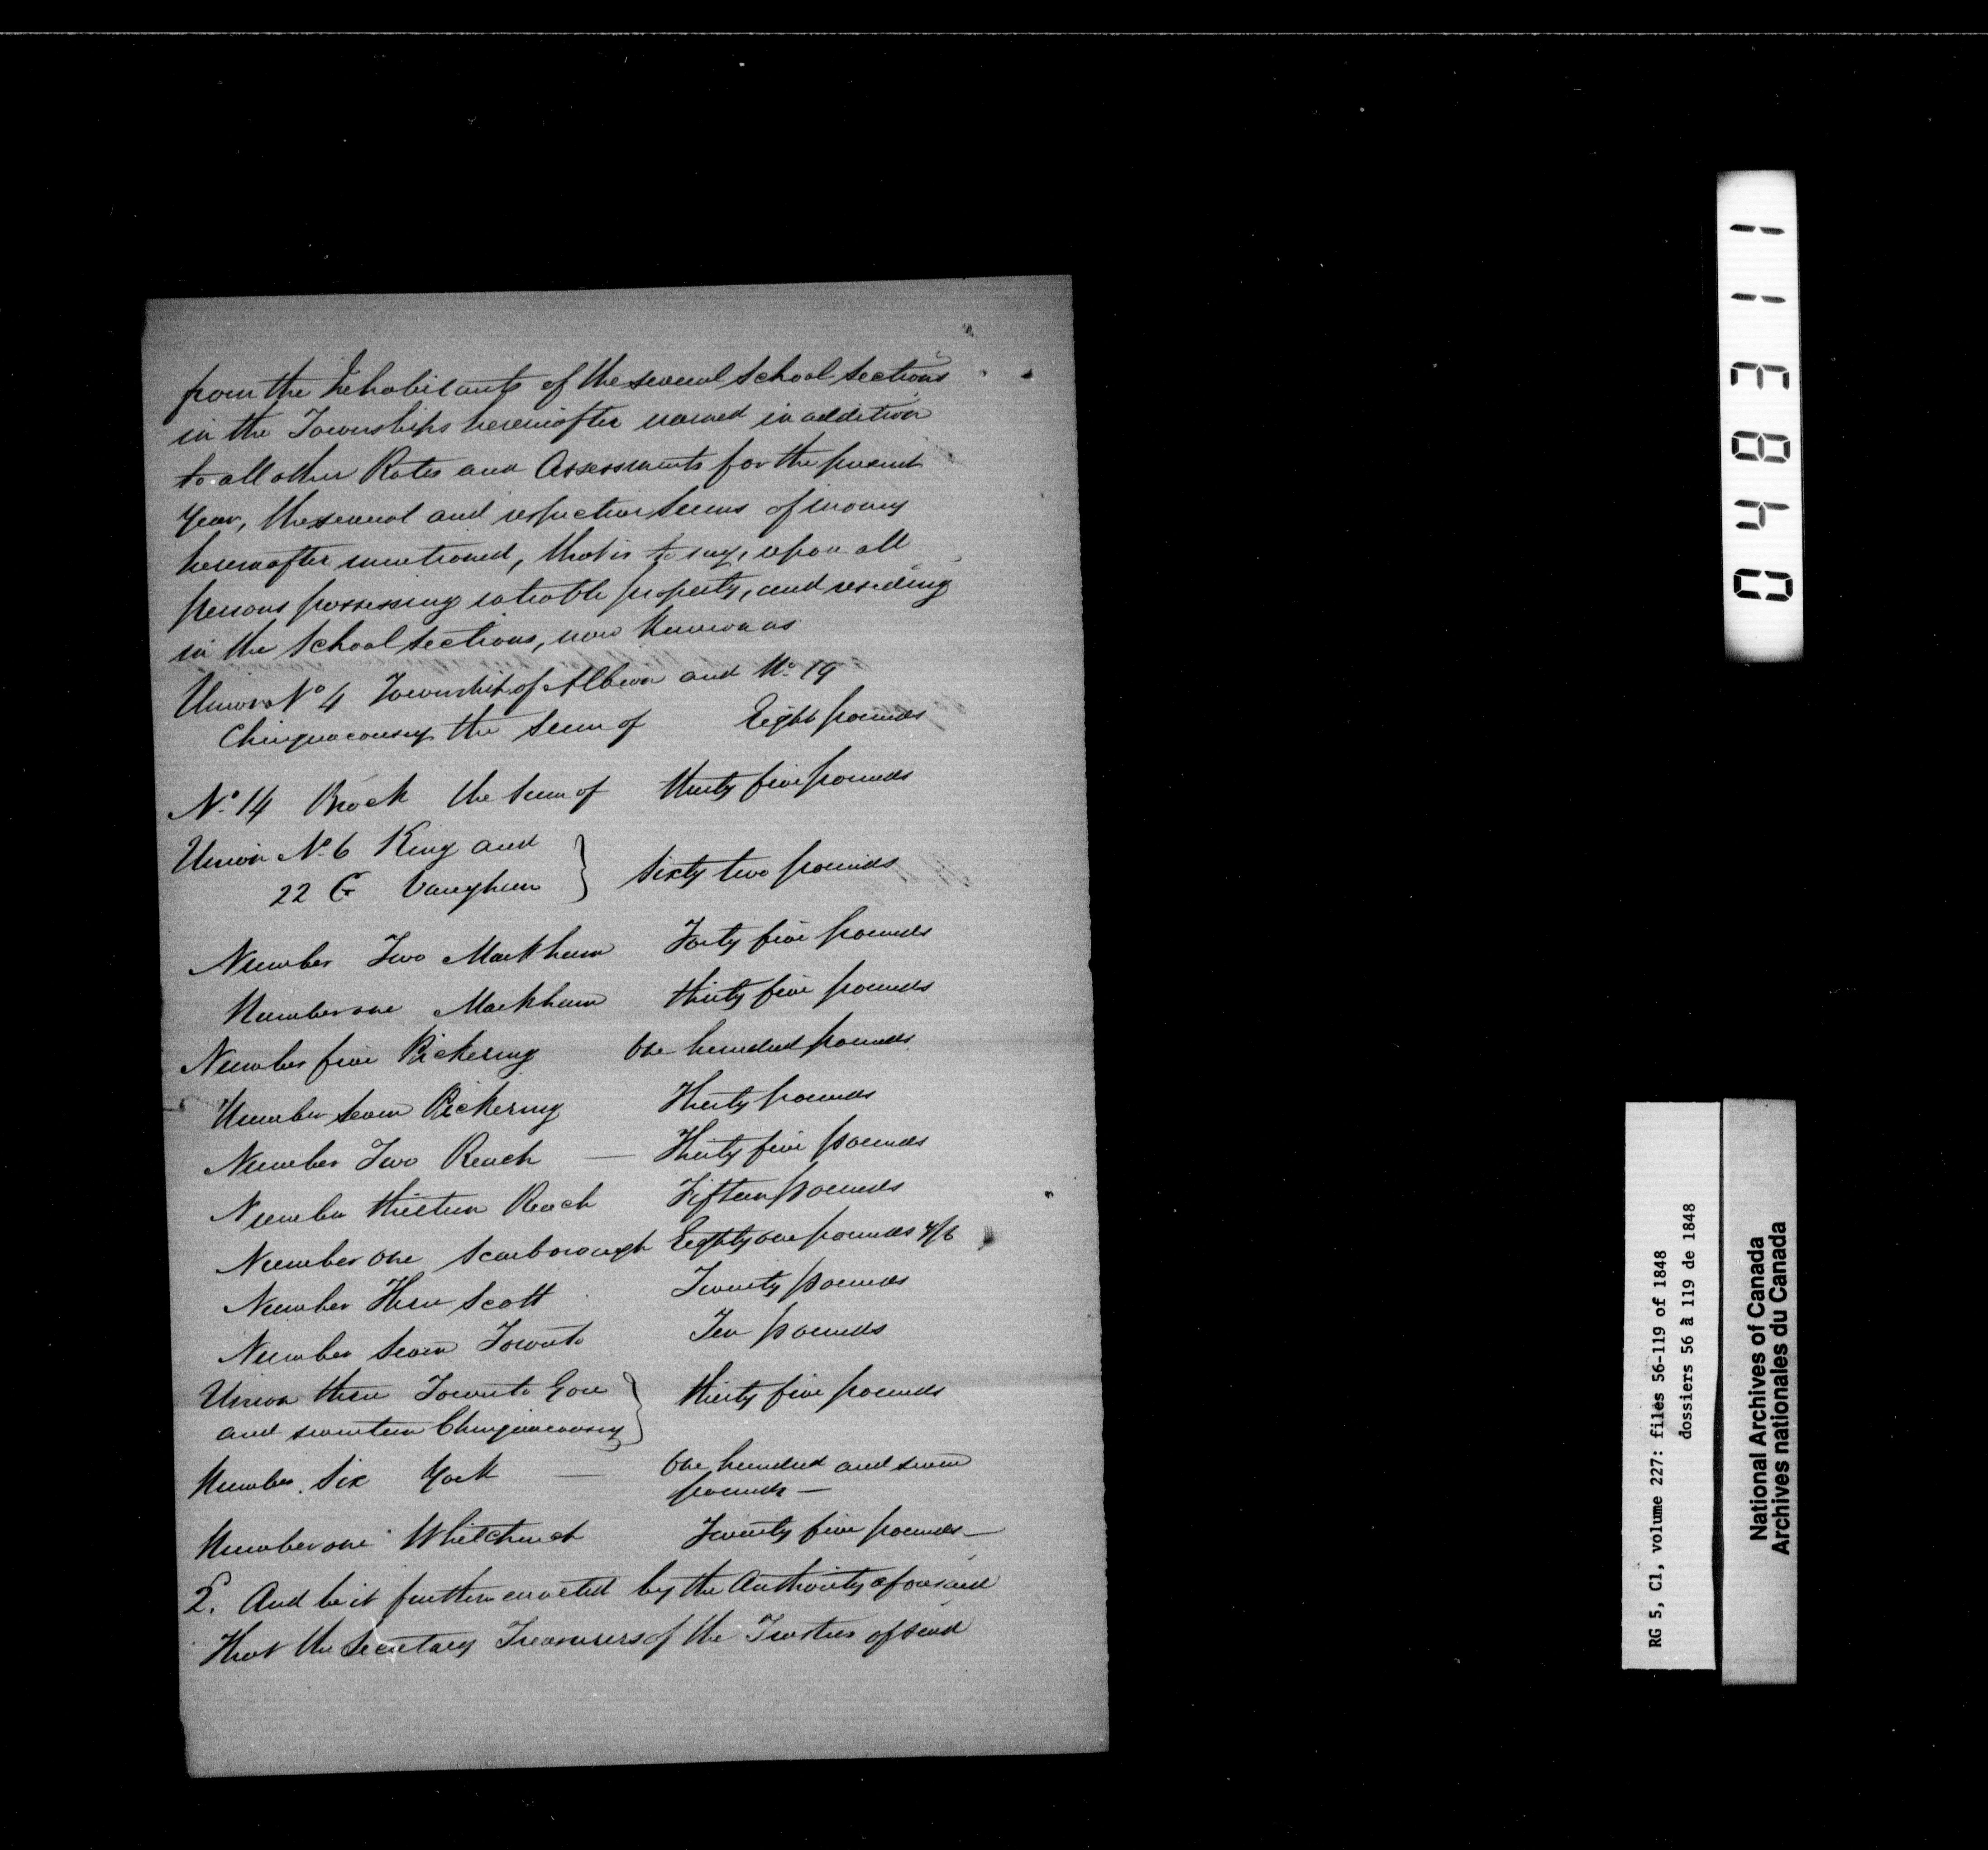 from the Inhabitants of the several School Sections
in the Townships hereinafter named in addition
to all other Rates and Assessments for the present
Year, the several and respective sums of money
hereinafter mentioned, that is to say, upon all
persons possessing rateable property, and residing
in the School Sections, now known as
Union No 4 Township of Albion and No. 19
Chinguacousy the sum of Eight pounds
No. 14 Brock the sum of thirty five pounds
Union No. 6 King and
22 Vaughan } Sixty two pounds
Number Two Markham Forty five pounds
Number one Markham thirty five pounds
Number five Pickering One hundred pounds
Number seven Pickering Thirty pounds
Number Two Reach — Thirty five pounds
Number thirteen Reach Fifteen pounds
Number one Scarborough Eighty one pounds 4/6
Number Three Scott Twenty pounds
Number Seven Toronto Ten pounds
Union three Toronto Gore
and seventeen Chinguacousy } thirty five pounds
Number Six York — One hundred and seven
pounds —
Number one Whitchurch Twenty five pounds —
2. And be it further enacted by the Authority aforesaid
That the Secretary Treasurers of the Trustees of said
043811
RG 5, C1, volume 227: files 56-119 of 1848
dossiers 56 à 119 de 1848
National Archives of Canada
Archives nationales du Canada